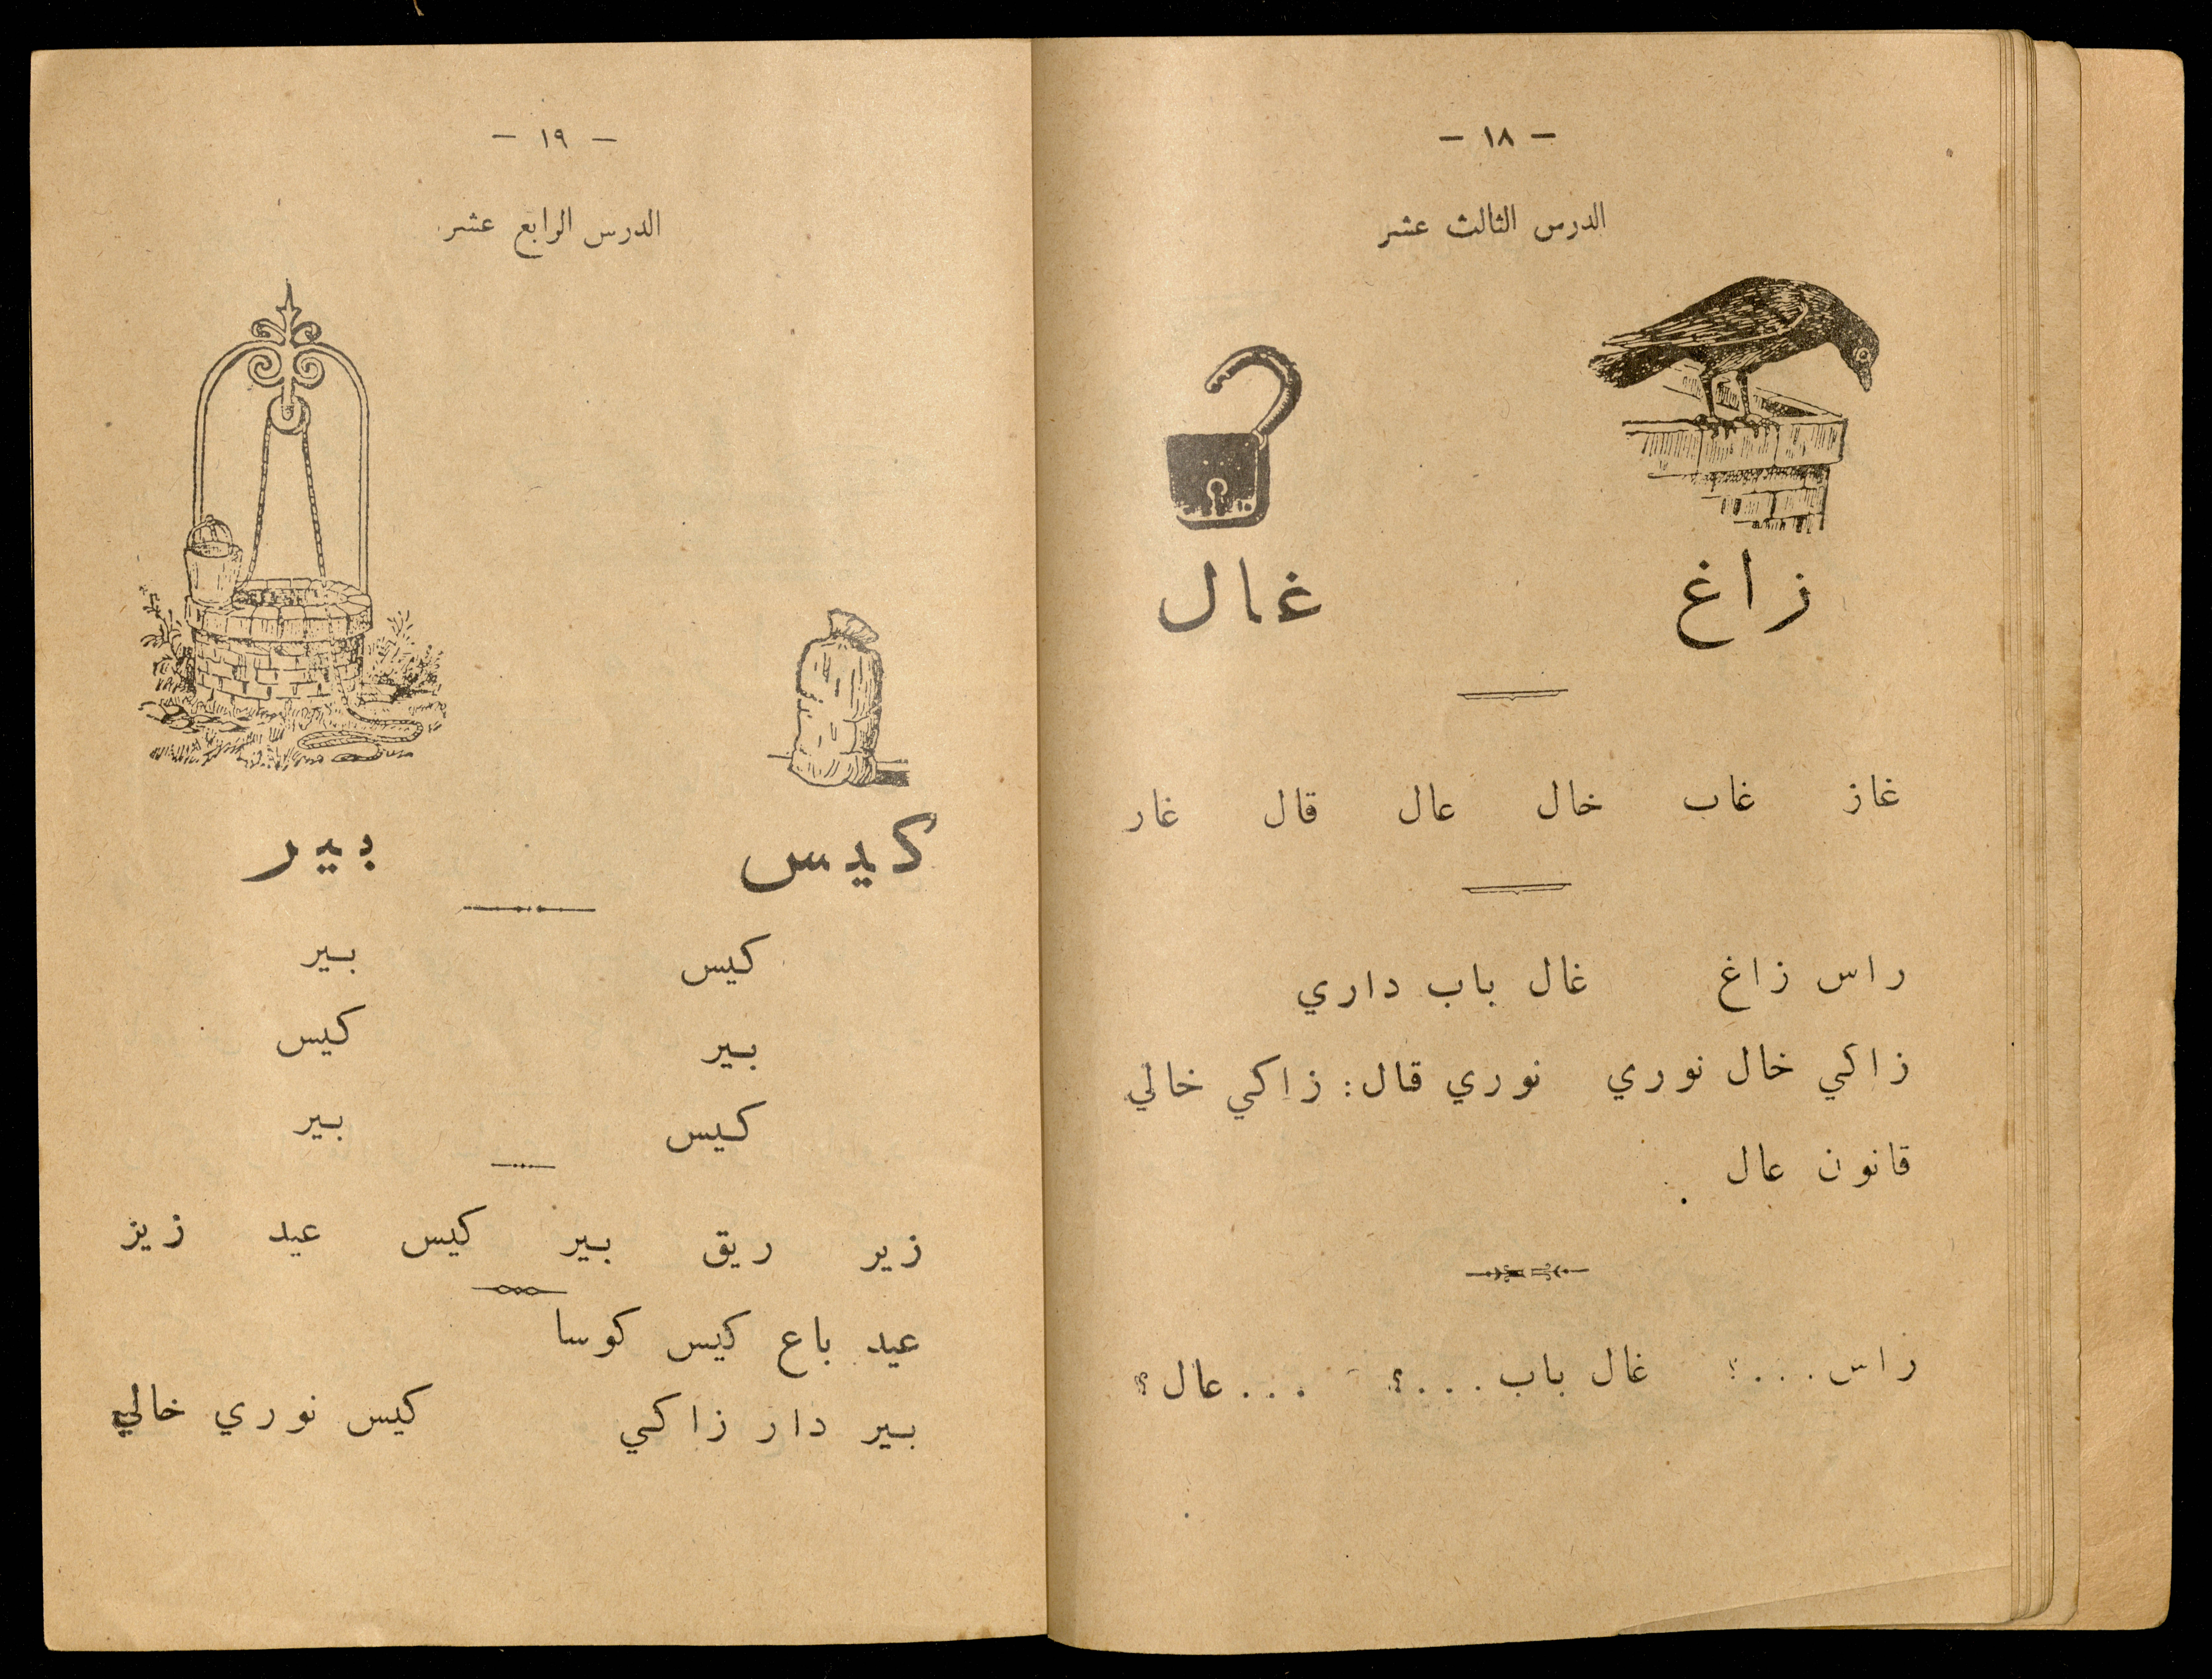 - ١٨ -
الدرس الثالث عشر
زاغ غال
غاز غاب خال عال قال غار
راس زاغ غال باب داري
زاكي خال نوري نوري قال: زاكي خالي
قانون عال
راس...؟ غال باب...؟ ...عال؟
- ١٩ -
الدرس الرابع عشر
كيس بير
كيس بير
بير كيس
كيس بير
زير ريق بير كيس عيد زيز
عيد باع كيس كوسا
بير دار زاكي كيس نوري خالي